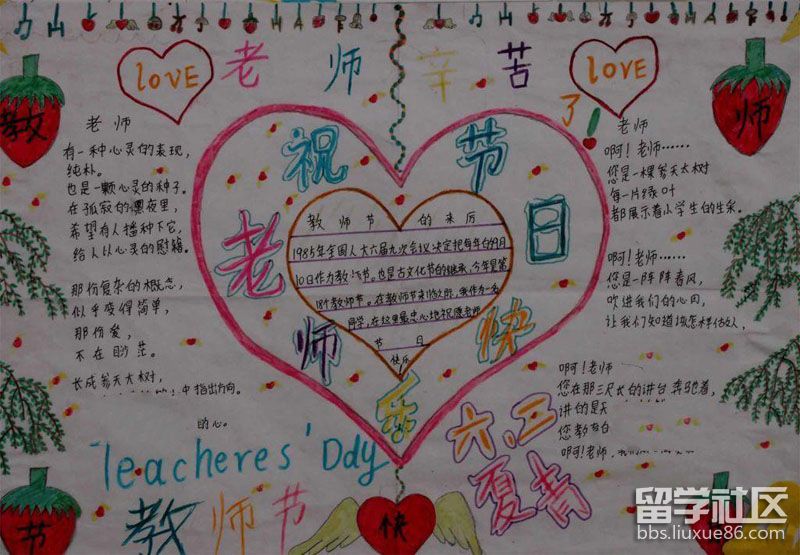 love
老师辛苦了!
love
教
师
老师
有一种心灵的表现,
纯朴。
也是一颗心灵的种子。
在孤寂的黑夜里,
希望有人播种下它,
给人以心灵的慰籍。
那份复杂的概念,
似乎变得简单,
那份爱,
不在
长成参天大树,
中指出方向。
的心。
祝
老师
节日
快乐
教师节的来历
1985年全国人大六届九次会议决定把每年的9月
10日作为教师节。也是古文化节的继承,今年是第
18个教师节。在教师节来临之前,我作为一名
同学,在这里最忠心地祝愿老师
节日
快乐
老师
啊!老师……
您是一棵参天大树
每一片绿叶
都展示着小学生的生采。
啊!老师……
您是一阵阵春风,
吹进我们的心田,
让我们知道该怎样做人,
啊!老师
您在那三尺长的讲台
讲的是
您教
啊!老师,
Teacheres' Day
教师节
六.三
夏青
节
快
留学社区
bbs.liuxue86.com